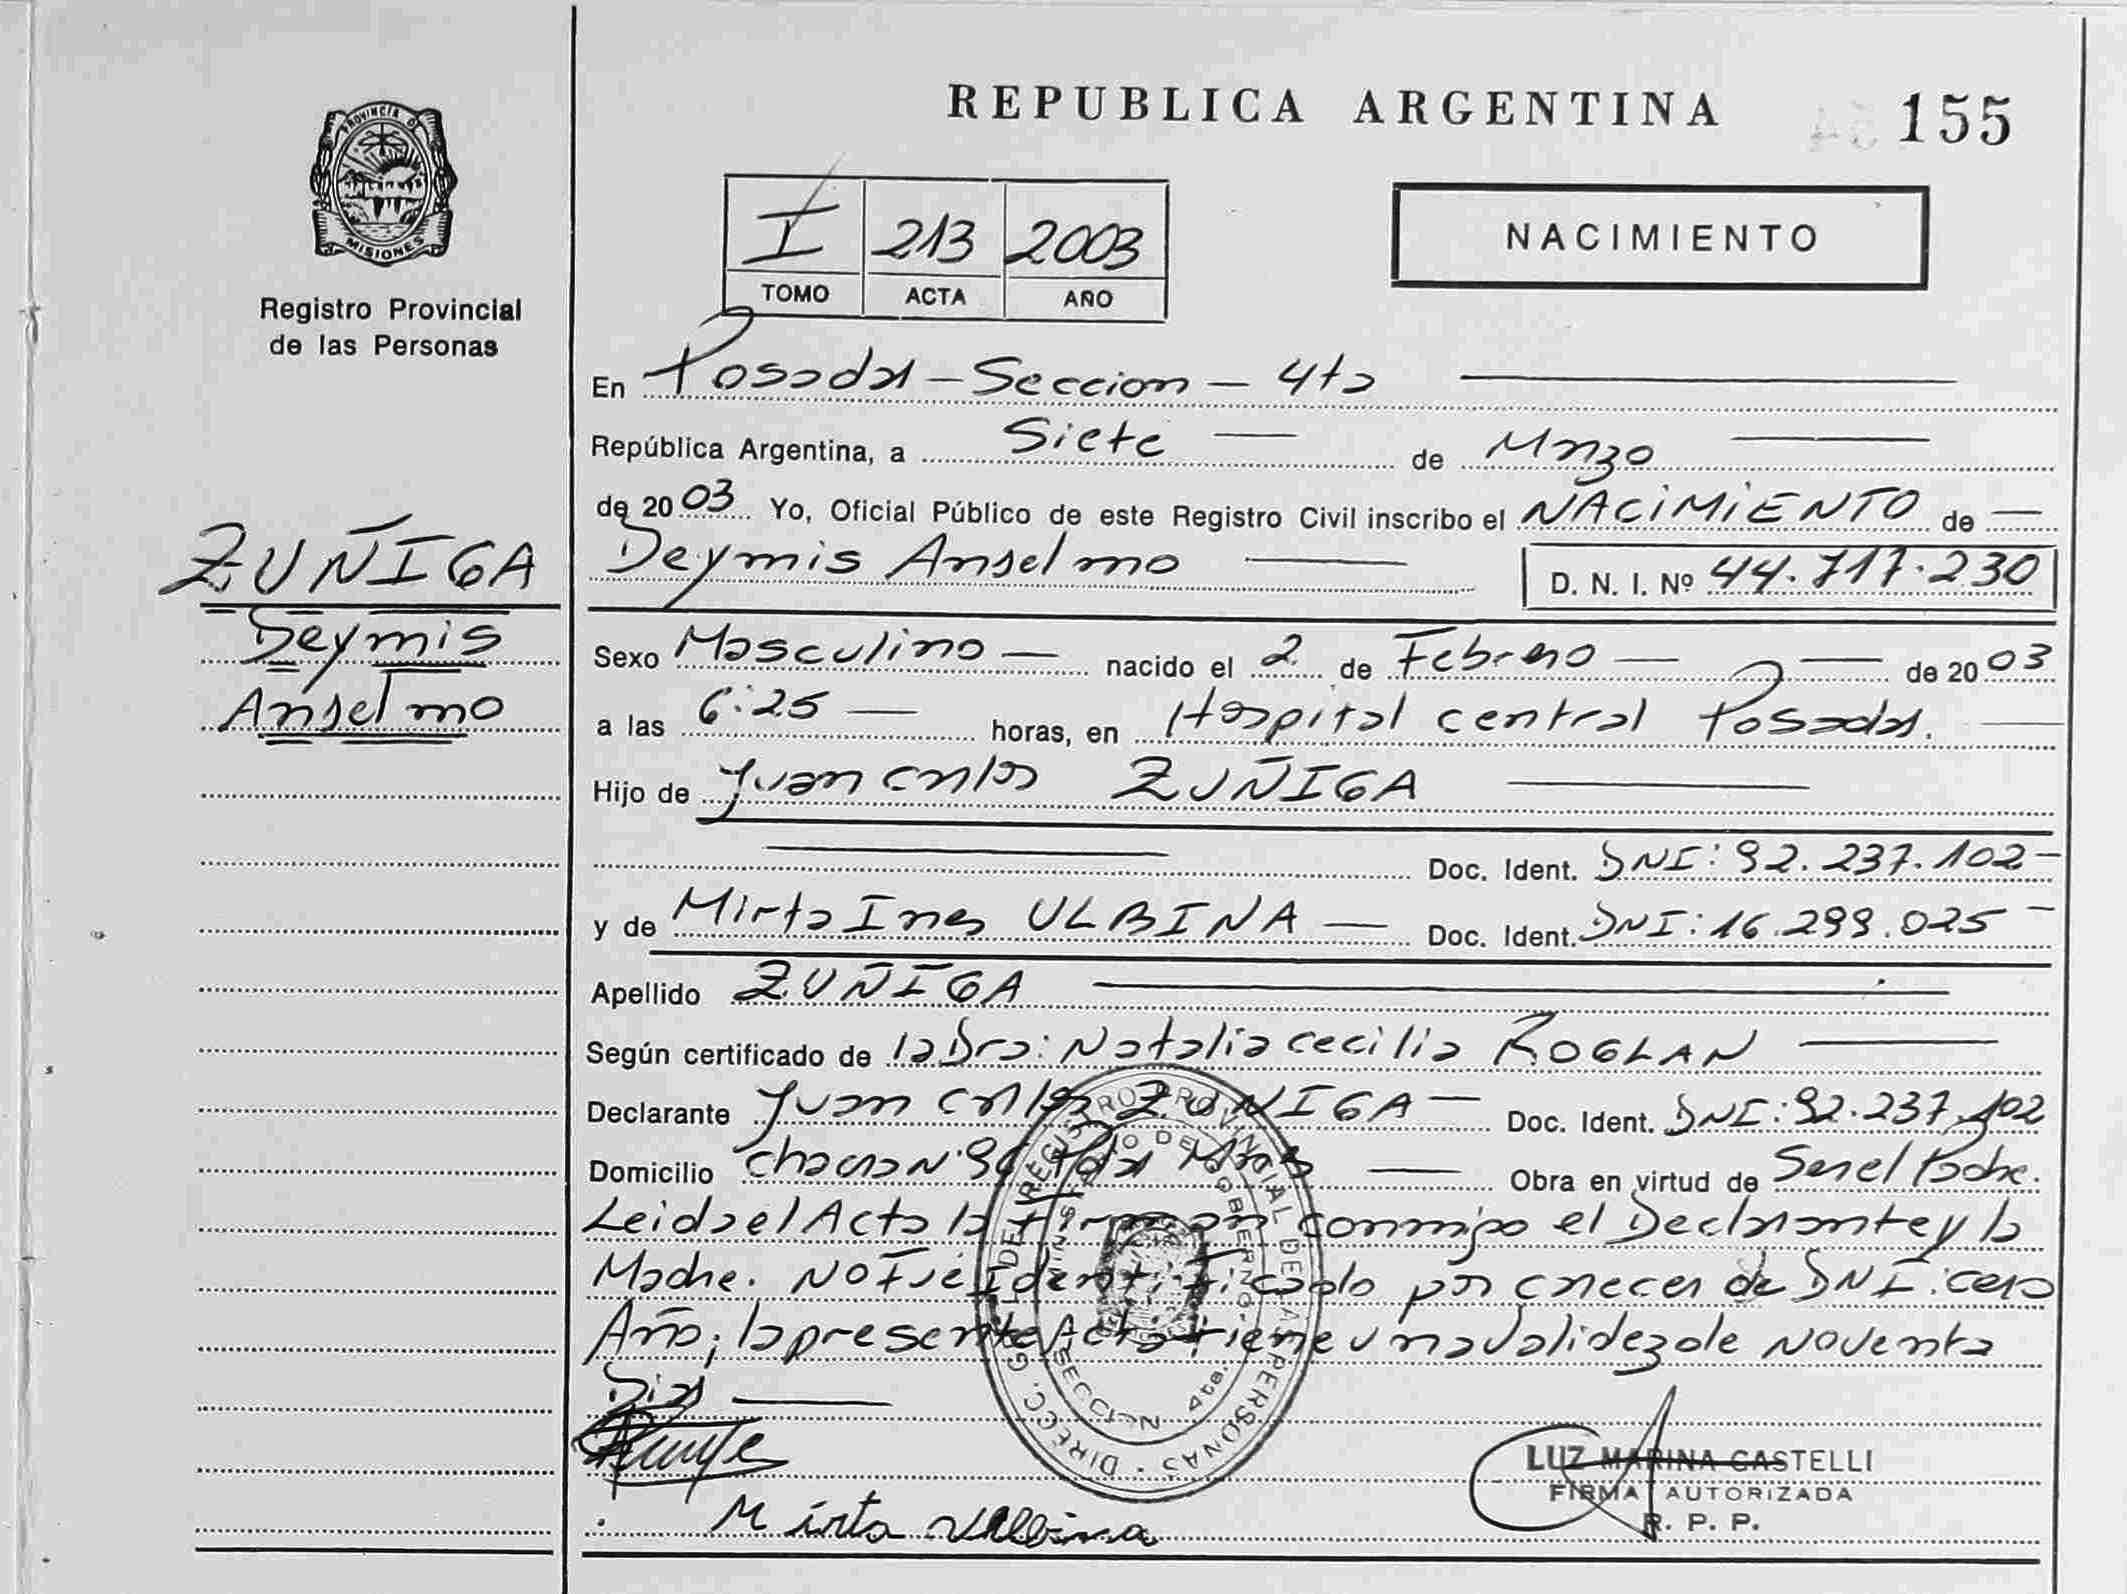 REPUBLICA ARGENTINA
155
PROVINCIA DE
MISIONES
Registro Provincial
de las Personas
I 213 2003
TOMO ACTA AÑO
NACIMIENTO
En Posadas - Seccion - 4ta
República Argentina, a Siete de Marzo
de 2003 Yo, Oficial Público de este Registro Civil inscribo el NACIMIENTO de
Deymis Anselmo D. N. I. Nº 44.717.230
ZUÑIGA
Deymis
Anselmo
Sexo Masculino nacido el 2 de Febrero de 2003
a las 6:25 horas, en Hospital central Posadas.
Hijo de Juan Carlos ZUÑIGA
Doc. Ident. DNI: 92.237.102
y de Mirta Ines ULBINA Doc. Ident. DNI: 16.299.025
Apellido ZUÑIGA
Según certificado de la Dra: Natalia cecilia ROGLAN
Declarante Juan Carlos ZUÑIGA Doc. Ident. DNI: 92.237.102
Domicilio Obra en virtud de Ser el Padre.
Leida el Acta la Firman conmigo el Declarante y la
Madre. NO Fue Identificado por carecer de DNI. cero
Año; la presente Acta tiene una validez de Noventa
Dias
DIRECC. GRAL. DE REGISTRO PROVINCIAL DE LAS PERSONAS
MINISTERIO DE GOBIERNO
SECCION 4ta.
Mirta
LUZ MARINA CASTELLI
FIRMA AUTORIZADA
R. P. P.